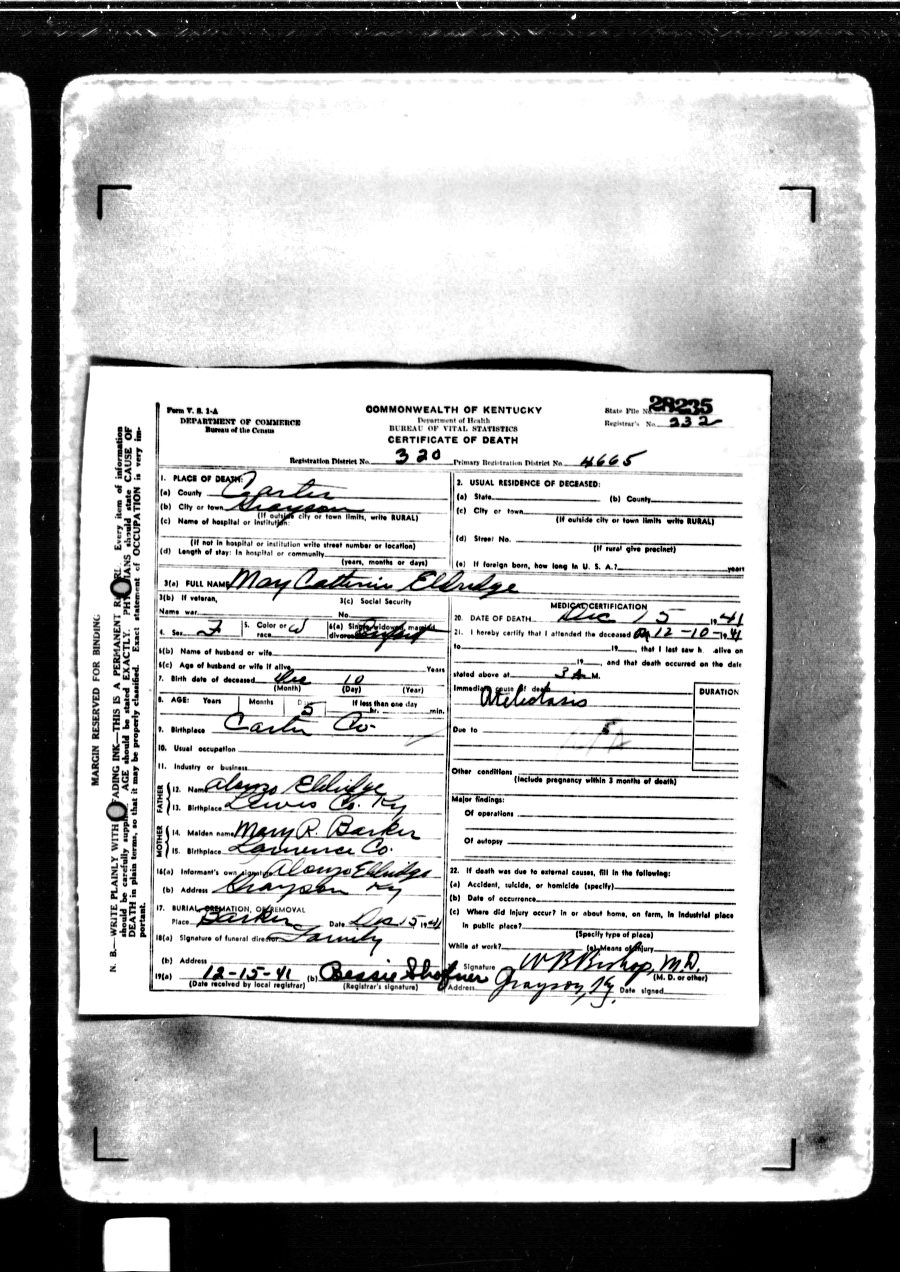 Form V. S. 1-A
DEPARTMENT OF COMMERCE
Bureau of the Census
COMMONWEALTH OF KENTUCKY
Department of Health
BUREAU OF VITAL STATISTICS
CERTIFICATE OF DEATH
State File No. 28235
Registrar's No. 232
Registration District No. 320 Primary Registration District No. 4665
1. PLACE OF DEATH:
(a) County Carter
(b) City or town Grayson
(If outside city or town limits, write RURAL)
(c) Name of hospital or institution:
(If not in hospital or institution write street number or location)
(d) Length of stay: In hospital or community
(years, months or days)
2. USUAL RESIDENCE OF DECEASED:
(a) State (b) County
(c) City or town
(If outside city or town limits write RURAL)
(d) Street No.
(If rural give precinct)
(e) If foreign born, how long in U. S. A.? years
3(a) FULL NAME May Catherin Eldridge
3(b) If veteran,
Name war
3(c) Social Security
No.
4. Sex F 5. Color or race W 6(a) Single, widowed, married, divorced Infant
6(b) Name of husband or wife
6(c) Age of husband or wife if alive Years
7. Birth date of deceased Dec 10
(Month) (Day) (Year)
8. AGE: Years Months Days 5 If less than one day
hr. min.
9. Birthplace Carter Co.
10. Usual occupation
11. Industry or business
FATHER
12. Name Alonzo Eldridge
13. Birthplace Lewis Co. Ky
MOTHER
14. Maiden name Mary R. Barker
15. Birthplace Lawrence Co.
16(a) Informant's own signature Alonzo Eldridge
(b) Address Grayson Ky
17. BURIAL, CREMATION, OR REMOVAL
Place Barker Date Dec 15 1941
18(a) Signature of funeral director Family
(b) Address
19(a) 12-15-41 (b) Bessie Shofner
(Date received by local registrar) (Registrar's signature)
MEDICAL CERTIFICATION
20. DATE OF DEATH Dec 15 1941
21. I hereby certify that I attended the deceased 12-10-1941
to 19 , that I last saw h alive on
19 , and that death occurred on the date
stated above at 3 A M.
Immediate cause of death
DURATION
Due to
Other conditions
(Include pregnancy within 3 months of death)
Major findings:
Of operations
Of autopsy
22. If death was due to external causes, fill in the following:
(a) Accident, suicide, or homicide (specify)
(b) Date of occurrence
(c) Where did injury occur? in or about home, on farm, in industrial place
in public place?
(Specify type of place)
While at work? (e) Means of injury
Signature W B Bishop, M.D.
(M. D. or other)
Address Grayson, Ky. Date signed
MARGIN RESERVED FOR BINDING
N. B.—WRITE PLAINLY WITH UNFADING INK—THIS IS A PERMANENT RECORD. Every item of information
should be carefully supplied. AGE should be stated EXACTLY. PHYSICIANS should state CAUSE OF
DEATH in plain terms, so that it may be properly classified. Exact statement of OCCUPATION is very im-
portant.